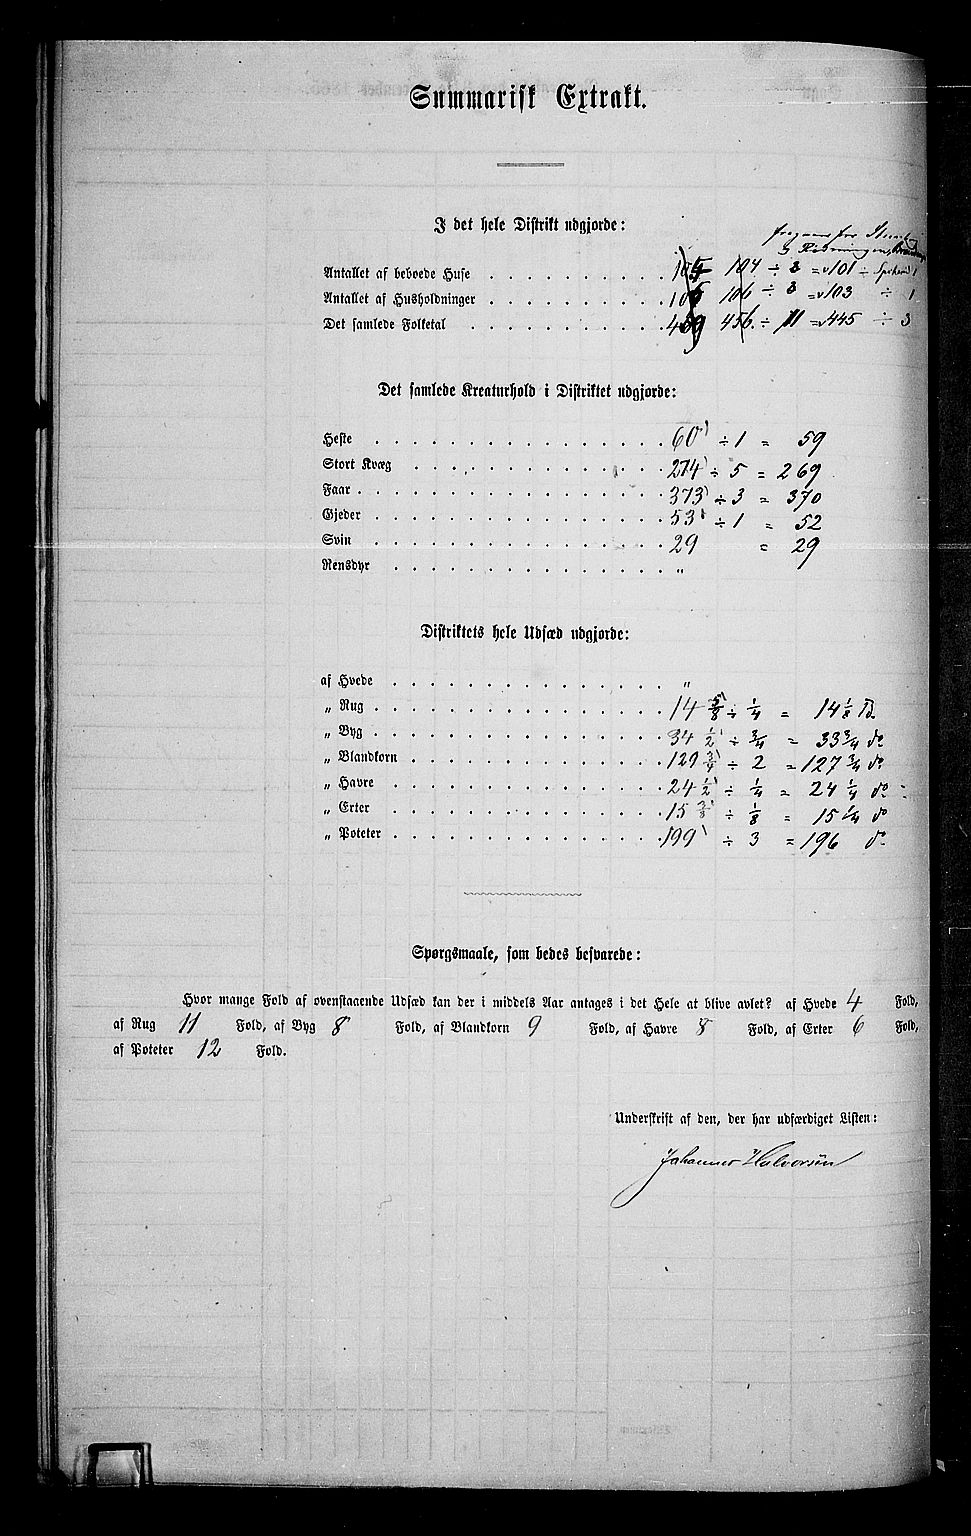 Summarisk Extrakt.
I det hele Distrikt udgjorde:
Antallet af beboede Huse 105 104 ÷ 3 = 101 ÷ 1
Antallet af Husholdninger 106 106 ÷ 3 = 103 ÷ 1
Det samlede Folketal 459 456 ÷ 11 = 445 ÷ 3
Det samlede Kreaturhold i Distriktet udgjorde:
Heste 60 ÷ 1 = 59
Stort Kvæg 274 ÷ 5 = 269
Faar 373 ÷ 3 = 370
Gjeder 53 ÷ 1 = 52
Svin 29 = 29
Rensdyr "
Distriktets hele Udsæd udgjorde:
af Hvede "
" Rug 14 3/8 ÷ 1/4 = 14 1/8 Td.
" Byg 34 1/2 ÷ 3/4 = 33 3/4 do
" Blandkorn 129 3/4 ÷ 2 = 127 3/4 do
" Havre 24 1/2 ÷ 1/4 = 24 1/4 do
" Erter 15 3/8 ÷ 1/8 = 15 1/4 do
" Poteter 199 ÷ 3 = 196 do
Spørgsmaale, som bedes besvarede:
Hvor mange Fold af ovenstaaende Udsæd kan der i middels Aar antages i det Hele at blive avlet? af Hvede 4 Fold,
af Rug 11 Fold, af Byg 8 Fold, af Blandkorn 9 Fold, af Havre 8 Fold, af Erter 6 Fold,
af Poteter 12 Fold.
Underskrift af den, der har udfærdiget Listen:
Johannes Halvorsen